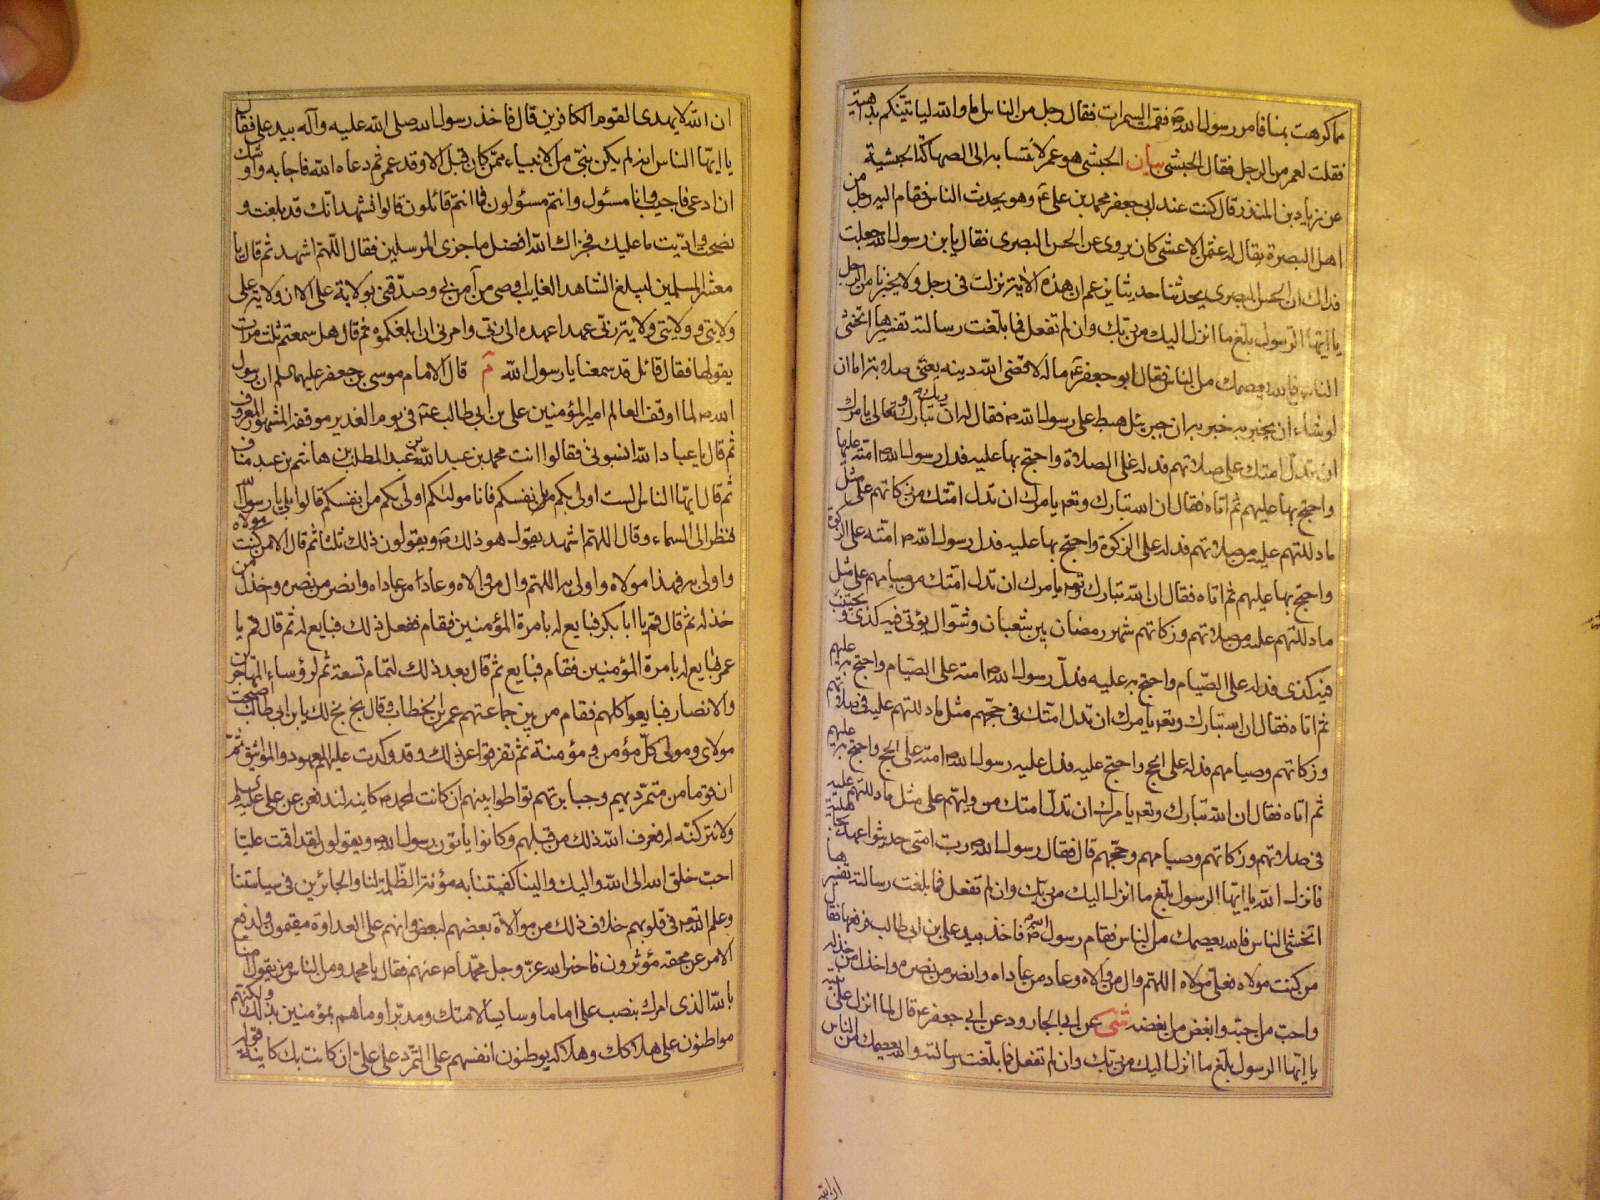 ما كرهت بمنا فامر رسول الله ص فقمت السمرات فقال رجل من الناس ما والله ليأتينكم بداهية
فقلت لعمر من الرجل فقال الحبشي بيان الحبشي هو عمر لانتسابه الى الصهاك الحبشية
عن زياد بن المنذر قال كنت عند ابي جعفر محمد بن علي ع وهو يحدث الناس فقام اليه رجل من
اهل البصرة يقال له عثمن الاعشى كان يروى عن الحسن البصرى فقال يا بن رسول الله جعلت
فداك ان الحسن البصرى يحدثنا حديثا يزعم ان هذه الاية نزلت في رجل ولا يخبرنا من الرجل
يا ايها الرسول بلغ ما انزل اليك من ربك وان لم تفعل فما بلغت رسالته تفسيرها اتخشى
الناس فالله يعصمك من الناس فقال ابو جعفر ع ما له لا قضى الله دينه يعنى صلاته اما ان
لو شاء ان يخبر به خبر به ان جبرئيل هبط على رسول الله ص فقال له ان ربك تبارك وتعالى يامرك
ان تدل امتك على صلاتهم فدله على الصلاة واحتج بها عليه فدل رسول الله امته عليها
واحتج بها عليهم ثم اتاه فقال ان الله تبارك وتعه يامرك ان تدل امتك من زكاتهم على مثل
ما دللتهم عليه من صلاتهم فدله على الزكوة واحتج بها عليه فدل رسول الله ص امته على الزكوة
واحتج بها عليهم ثم اتاه فقال ان الله تبارك وتعه يامرك ان تدل امتك من صيامهم على مثل
ما دللتهم عليه من صلاتهم وزكاتهم شهر رمضان بين شعبان وشوال يؤتى فيه كذى ويجتنب
فيه كذى فدله على الصيام واحتج به عليه فدل رسول الله امته على الصيام واحتج به عليهم
ثم اتاه فقال ان الله تبارك وتعه يامرك ان تدل امتك في حجهم مثل ما دللتهم عليه في صلاتهم
وزكاتهم وصيامهم فدله على الحج واحتج عليه فدل عليه رسول الله امته على الحج واحتج به عليهم
ثم اتاه فقال ان الله تبارك وتعه يامرك ان تدل امتك من وليهم على مثل ما دللتهم عليه
في صلاتهم وزكاتهم وصيامهم وحجهم قال فقال رسول الله ص رب امتى حديثوا عهد بجاهلية
فانزل الله يا ايها الرسول بلغ ما انزل اليك من ربك وان لم تفعل فما بلغت رسالته تفسيرها
اتخشى الناس فالله يعصمك من الناس فقام رسول الله ص فاخذ بيد علي بن ابي طالب فرفعها فقال
من كنت مولاه فعلي مولاه اللهم وال من والاه وعاد من عاداه وانصر من نصره واخذل من خذله
واحب من احبه وابغض من ابغضه شى عن ابي الجارود عن ابي جعفر ع قال لما انزل الله على نبيه
يا ايها الرسول بلغ ما انزل اليك من ربك وان لم تفعل فما بلغت رسالته والله يعصمك من الناس
ان الله لا يهدى القوم الكافرين قال فاخذ رسول الله صلى الله عليه وآله بيد علي فقال
يا ايها الناس انه لم يكن نبى من الانبياء ممن كان قبل الا وقد عمر ثم دعاه الله فاجابه واوشك
ان ادعى فاجيب وانا مسئول وانتم مسئولون فما انتم قائلون قالوا نشهد انك قد بلغت و
نصحت واديت ما عليك فجزاك الله افضل ما جزى المرسلين فقال اللهم اشهد ثم قال يا
معشر المسلمين ليبلغ الشاهد الغايب اوصى من آمن بي وصدقنى بولاية علي الا ان ولاية علي
ولايتى وولايتى ولاية ربى عهدا عهده الى ربى وامرنى ان ابلغكموه ثم قال هل سمعتم ثلث مرات
يقولها فقال قائل قد سمعنا يا رسول الله م قال الامام موسى بن جعفر عليهما السلم ان رسول
الله ص لما اوقف العالم امير المؤمنين علي بن ابي طالب ع في يوم الغدير موقفه المشهور المعروف
ثم قال يا عباد الله انسبونى فقالوا انت محمد بن عبد الله بن عبد المطلب بن هاشم بن عبد مناف
ثم قال ايها الناس الست اولى بكم من انفسكم فانا مولاكم اولى بكم من انفسكم قالوا بلى يا رسول الله
فنظر الى السماء وقال اللهم اشهد يقول هو ذلك ص ويقولون ذلك ثلثا ثم قال الا من كنت مولاه
واولى به فهذا مولاه واولى به اللهم وال من والاه وعاد من عاداه وانصر من نصره واخذل من
خذله ثم قال قم يا ابا بكر فبايع له بامرة المؤمنين فقام ففعل ذلك فبايع له ثم قال قم يا
عمر فبايع له بامرة المؤمنين فقام فبايع ثم قال بعد ذلك لتمام تسعة ثم لرؤساء المهاجرين
والانصار فبايعوا كلهم فقام من بين جماعتهم عمر بن الخطاب وقال بخ بخ لك يا بن ابي طالب اصبحت
مولاى ومولى كل مؤمن ومؤمنة ثم تفرقوا عن ذلك وقد وكدت عليهم العهود والمواثيق ثم
ان قوما من متمرديهم وجبابرتهم تواطوا بينهم ان كانت لمحمد ص كاينة لندفعن عن علي عليه السلم
ولا نتركنه له فعرف الله ذلك من قبلهم وكانوا ياتون رسول الله ص ويقولون لقد اقمت عليا
احب خلق الله الى الله واليك والينا كفيتنا به مؤنة الظلمة لنا والجائرين في سياستنا
وعلم الله تع في قلوبهم خلاف ذلك من موالاة بعضهم لبعض وانهم على العداوة مقيمون ولدفع
الامر عن محقه مؤثرون فاخبر الله عز وجل محمدا ص عنهم فقال يا محمد ومن الناس من يقول آمنا
بالله الذى امرك بنصب علي اماما وسايسا لامتك ومدبرا وما هم بمؤمنين بذلك ولكنهم
مواطئون على هلاكك وهلاكه يوطنون انفسهم على التمرد على علي ان كانت بك كاينة قوله